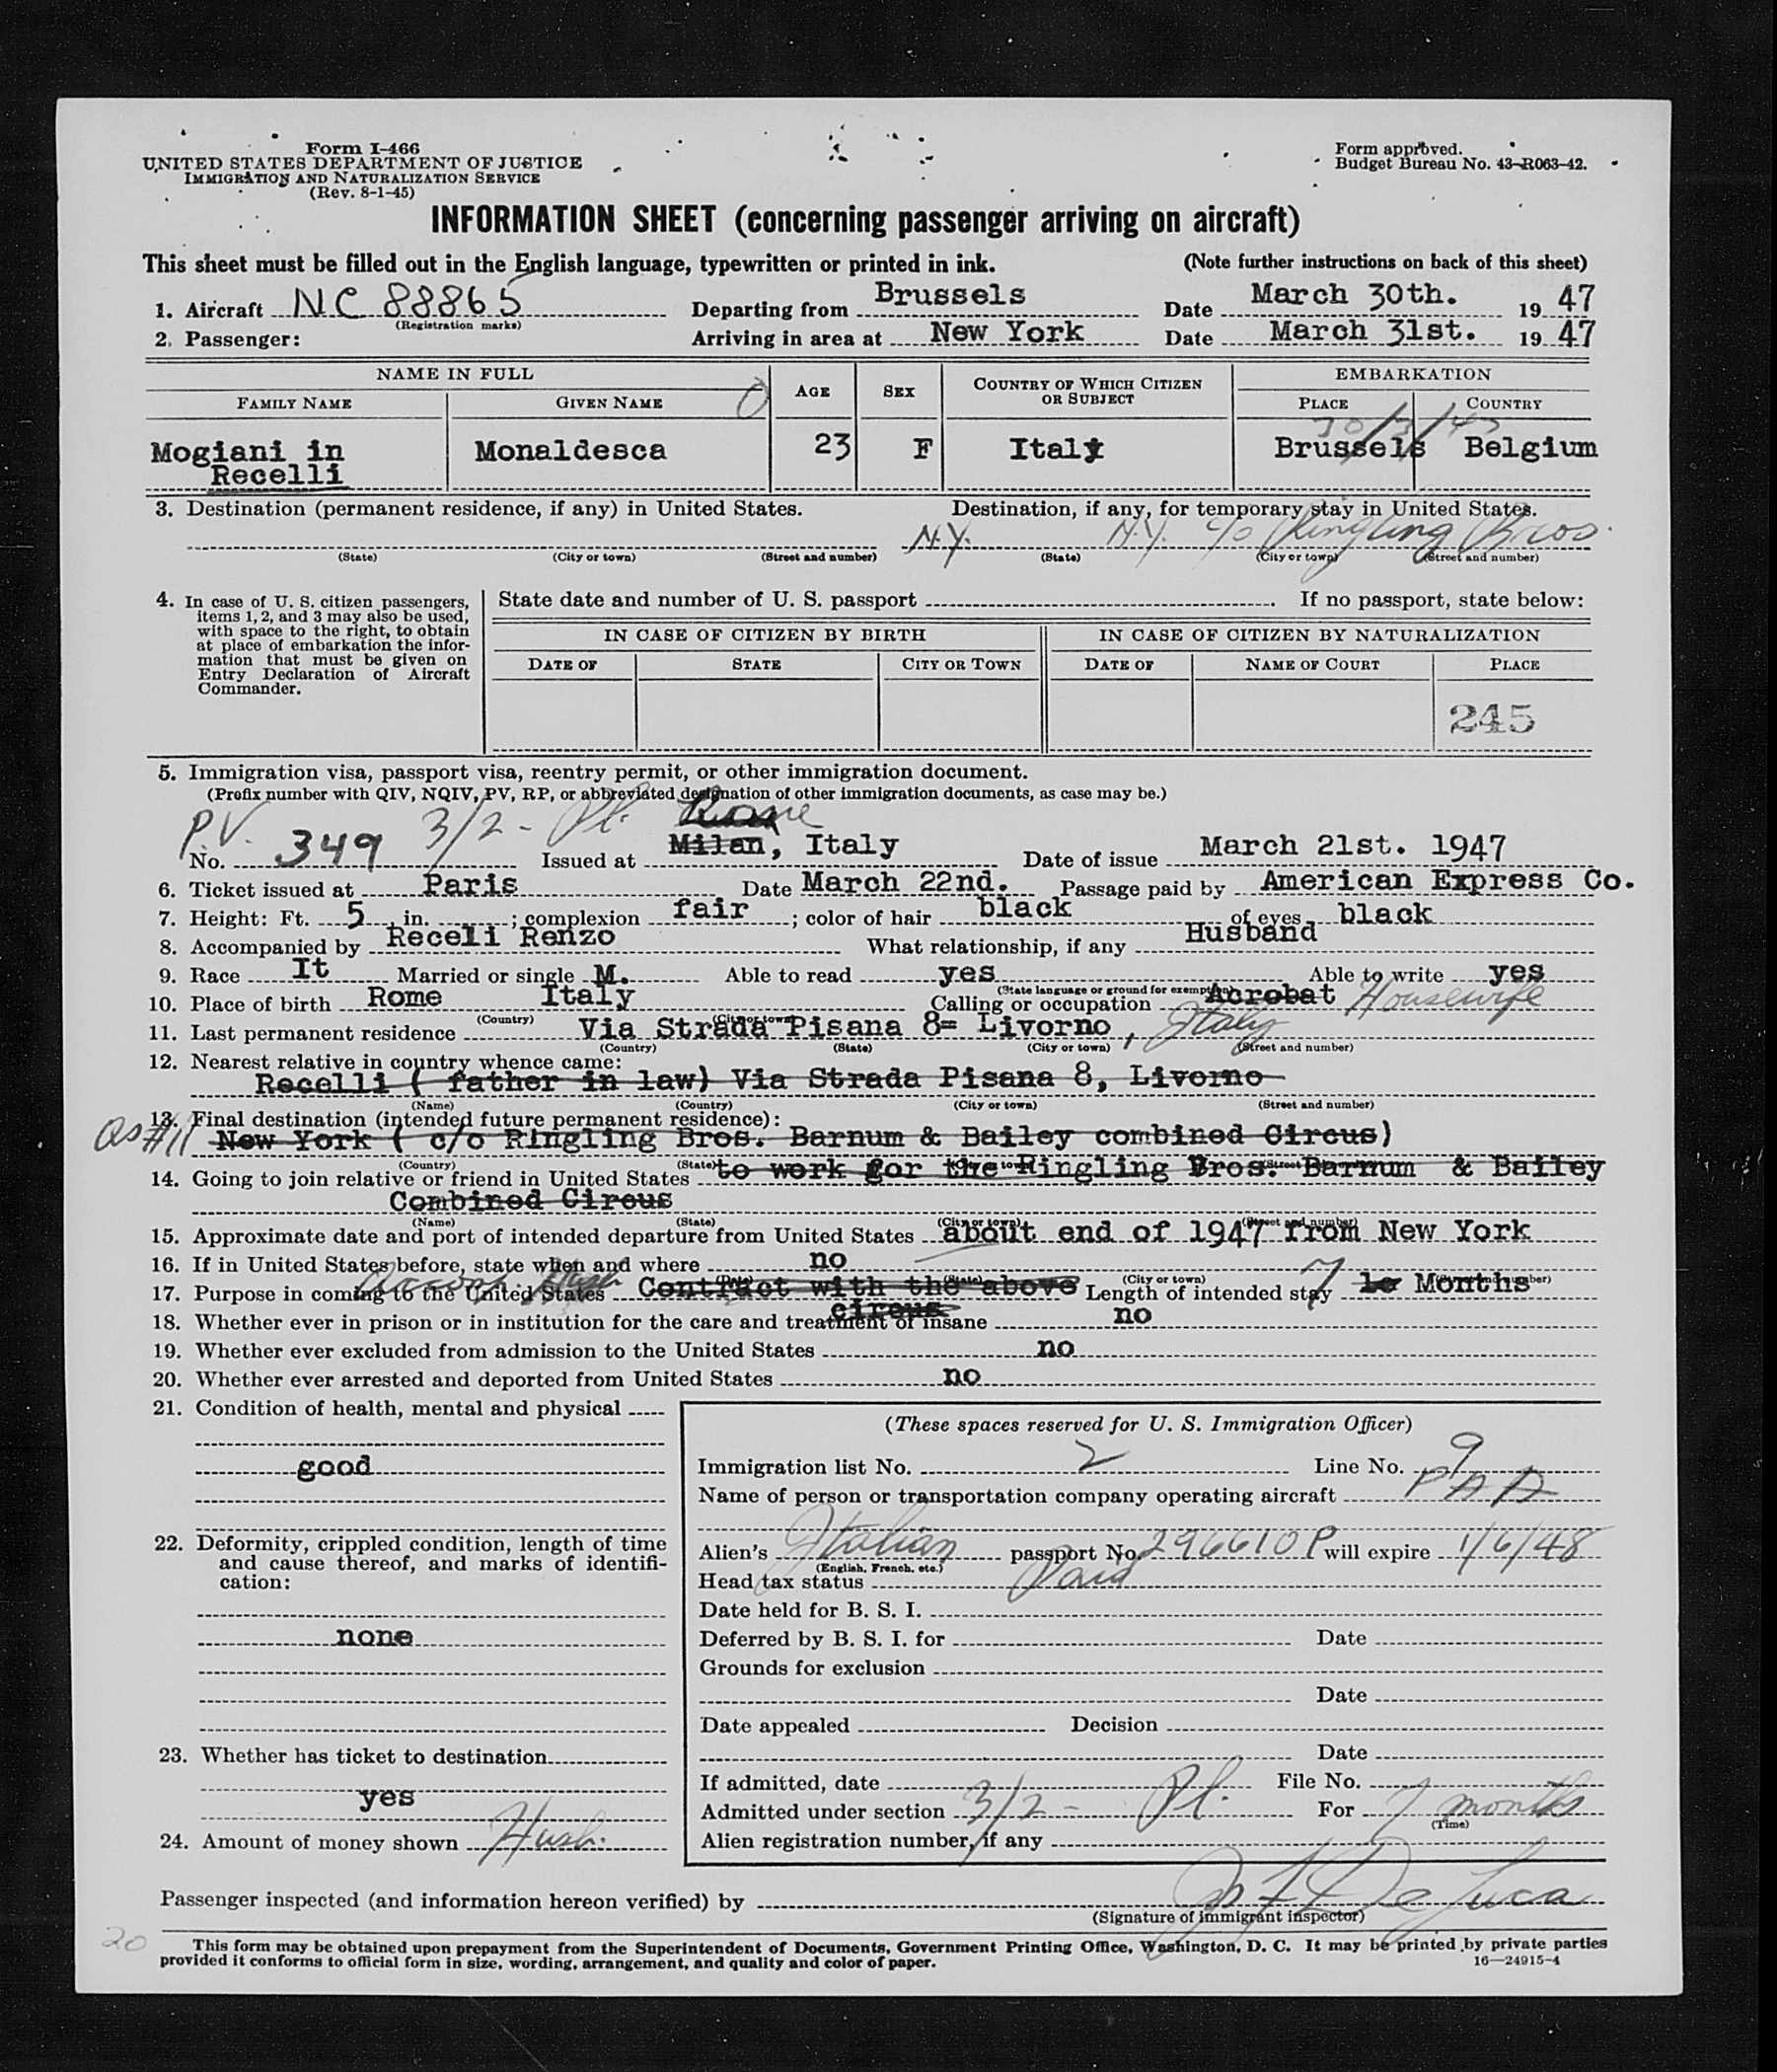 Form I-466
UNITED STATES DEPARTMENT OF JUSTICE
IMMIGRATION AND NATURALIZATION SERVICE
(Rev. 8-1-45)
Form approved.
Budget Bureau No. 43-R063-42.
INFORMATION SHEET (concerning passenger arriving on aircraft)
This sheet must be filled out in the English language, typewritten or printed in ink. (Note further instructions on back of this sheet)
1. Aircraft NC 88865 Departing from Brussels Date March 30th. 19 47
(Registration marks)
2. Passenger: Arriving in area at New York Date March 31st. 19 47
NAME IN FULL AGE SEX COUNTRY OF WHICH CITIZEN OR SUBJECT EMBARKATION
FAMILY NAME GIVEN NAME PLACE COUNTRY
30/3/47
Mogiani in Monaldesca 23 F Italy Brussels Belgium
Recelli
3. Destination (permanent residence, if any) in United States. Destination, if any, for temporary stay in United States.
N.Y. N.Y. c/o Ringling Bros.
(State) (City or town) (Street and number) (State) (City or town) (Street and number)
4. In case of U. S. citizen passengers, items 1, 2, and 3 may also be used, with space to the right, to obtain at place of embarkation the information that must be given on Entry Declaration of Aircraft Commander.
State date and number of U. S. passport . If no passport, state below:
IN CASE OF CITIZEN BY BIRTH IN CASE OF CITIZEN BY NATURALIZATION
DATE OF STATE CITY OR TOWN DATE OF NAME OF COURT PLACE
245
5. Immigration visa, passport visa, reentry permit, or other immigration document.
(Prefix number with QIV, NQIV, PV, RP, or abbreviated designation of other immigration documents, as case may be.)
P.V. 3/2 - Pl. Rome
No. 349 Issued at Milan, Italy Date of issue March 21st. 1947
6. Ticket issued at Paris Date March 22nd. Passage paid by American Express Co.
7. Height: Ft. 5 in. ; complexion fair ; color of hair black of eyes black
8. Accompanied by Receli Renzo What relationship, if any Husband
9. Race It Married or single M. Able to read yes Able to write yes
(State language or ground for exemption)
10. Place of birth Rome Italy Calling or occupation Acrobat Housewife
(Country) (City or town)
11. Last permanent residence Via Strada Pisana 8= Livorno , Italy
(Country) (State) (City or town) (Street and number)
12. Nearest relative in country whence came:
Recelli ( father in law) Via Strada Pisana 8, Livorno
(Name) (Country) (City or town) (Street and number)
13. Final destination (intended future permanent residence):
as #11 New York ( c/o Ringling Bros. Barnum & Bailey combined Circus)
(Country) (State) (City or town) (Street and number)
14. Going to join relative or friend in United States to work for the Ringling Bros. Barnum & Bailey
Combined Circus
(Name) (State) (City or town) (Street and number)
15. Approximate date and port of intended departure from United States about end of 1947 from New York
16. If in United States before, state when and where no
(Date) (State) (City or town) (Street and number)
accomp. Husb
17. Purpose in coming to the United States Contract with the above Length of intended stay 7 Months
circus
18. Whether ever in prison or in institution for the care and treatment of insane no
19. Whether ever excluded from admission to the United States no
20. Whether ever arrested and deported from United States no
21. Condition of health, mental and physical
good
22. Deformity, crippled condition, length of time and cause thereof, and marks of identification:
none
23. Whether has ticket to destination
yes
24. Amount of money shown Husb.
(These spaces reserved for U. S. Immigration Officer)
Immigration list No. 2 Line No. 9
Name of person or transportation company operating aircraft PAA
Alien's Italian passport No. 296610P will expire 1/6/48
(English, French, etc.)
Head tax status Paid
Date held for B. S. I.
Deferred by B. S. I. for Date
Grounds for exclusion
Date
Date appealed Decision
Date
If admitted, date File No.
Admitted under section 3/2 - Pl. For 7 months
(Time)
Alien registration number, if any
Passenger inspected (and information hereon verified) by De Luca
(Signature of immigrant inspector)
20
This form may be obtained upon prepayment from the Superintendent of Documents, Government Printing Office, Washington, D. C. It may be printed by private parties
provided it conforms to official form in size, wording, arrangement, and quality and color of paper. 16—24915-4